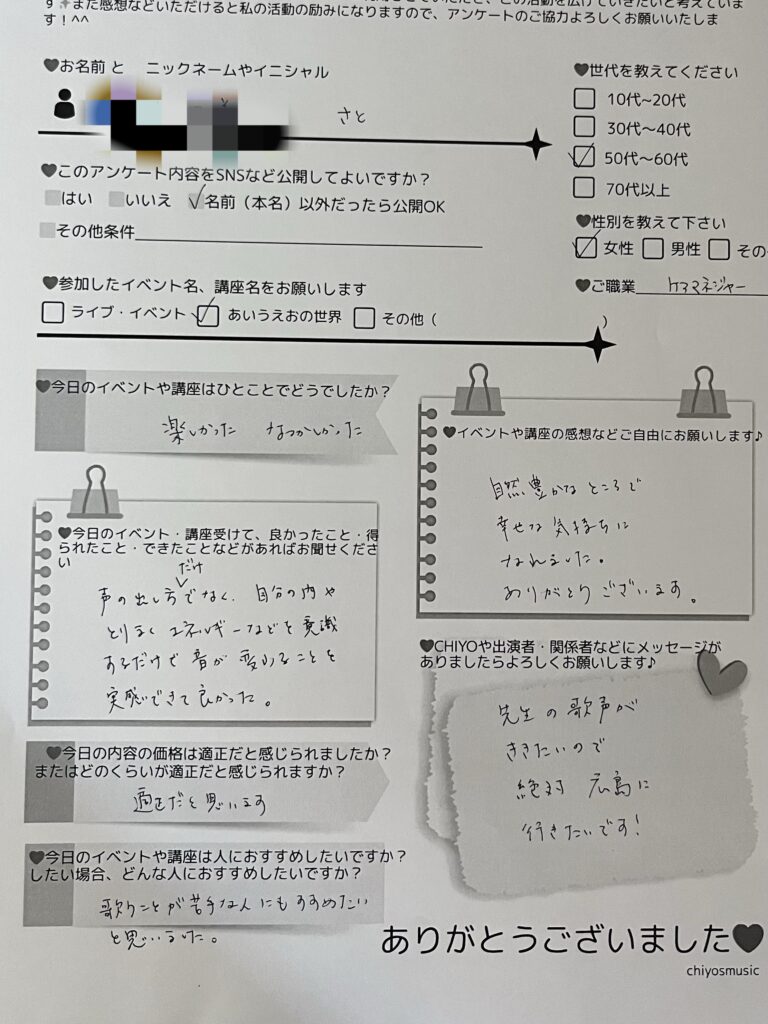 す✨また感想などいただけると私の活動の励みになりますので、アンケートのご協力よろしくお願いいたしま
す！^^
♥お名前 と ニックネームやイニシャル
さと
♥このアンケート内容をSNSなど公開してよいですか？
はい いいえ ✓名前（本名）以外だったら公開OK
その他条件
♥世代を教えてください
10代~20代
30代〜40代
✓50代〜60代
70代以上
♥性別を教えて下さい
✓女性 男性 その
♥ご職業 ケアマネジャー
♥参加したイベント名、講座名をお願いします
ライブ・イベント ✓あいうえおの世界 その他（ ）
♥今日のイベントや講座はひとことでどうでしたか？
楽しかった なつかしかった
♥今日のイベント・講座受けて、良かったこと・得
られたこと・できたことなどがあればお聞せくださ
い
だけ
声の出し方でなく、自分の内や
とりまくエネルギーなどを意識
するだけで音が変わることを
実感できて良かった。
♥今日の内容の価格は適正だと感じられましたか？
またはどのくらいが適正だと感じられますか？
適正だと思います
♥今日のイベントや講座は人におすすめしたいですか？
したい場合、どんな人におすすめしたいですか？
歌うことが苦手な人にもすすめたい
と思いました。
♥イベントや講座の感想などご自由にお願いします♪
自然豊かなところで
幸せな気持ちに
なれました。
ありがとうございます。
♥CHIYOや出演者・関係者などにメッセージが
ありましたらよろしくお願いします♪
先生の歌声が
ききたいので
絶対 広島に
行きたいです！
ありがとうございました♥
chiyosmusic